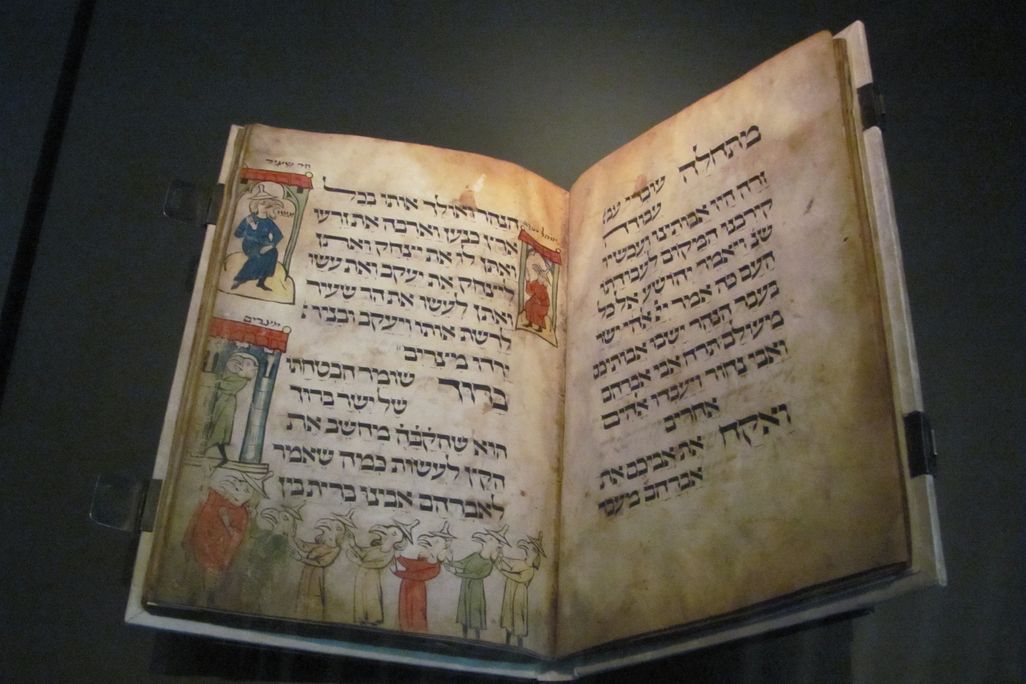 מתחלה עובדי עבו
עבודה
זרה היו אבותינו ועכשיו
קירבנו המקום לעבודתו
שנ ויאמר יהושע אל כל
העם כה אמר אלהי ישר
בעבר הנהר ישבו אבותיכם
מעולם תרח אבי אברהם
ואבי נחור ויעבדו אלהים
אחרים
ואקח את אביכם את
אברהם מעבר
הר שעיר
עשו
הנהר ואולך אותו בכל
ארץ כנען וארבה את זרעו
ואתן לו את יצחק ואתן
ליצחק את יעקב ואת עשו
ואתן לעשו את הר שעיר
לרשת אותו ויעקב ובניו
ירדו מיצרים
מצרים
ברוך שומר הבטחתו
של ישר ברוך
הוא שהקבה מחשב את
הקץ לעשות כמה שאמר
לאברהם אבינו ברית בין